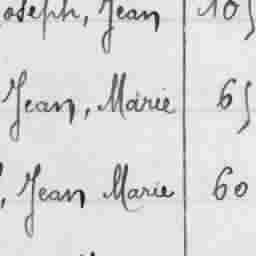 oseph, Jean 105
Jean, Marie 65
, Jean Marie 60